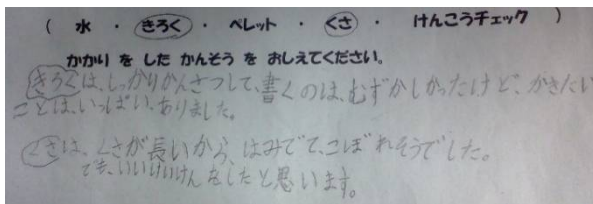 ( 水 ・ きろく ・ ペレット ・ くさ ・ けんこうチェック )
かかり を した かんそう を おしえてください。
きろくは、しっかりかんさつして、書くのは、むずかしかったけど、かきたい
ことは、いっぱい、ありました。
くさは、くさが長いから、はみでて、こぼれそうでした。
でも、いいけいけんをしたと思います。